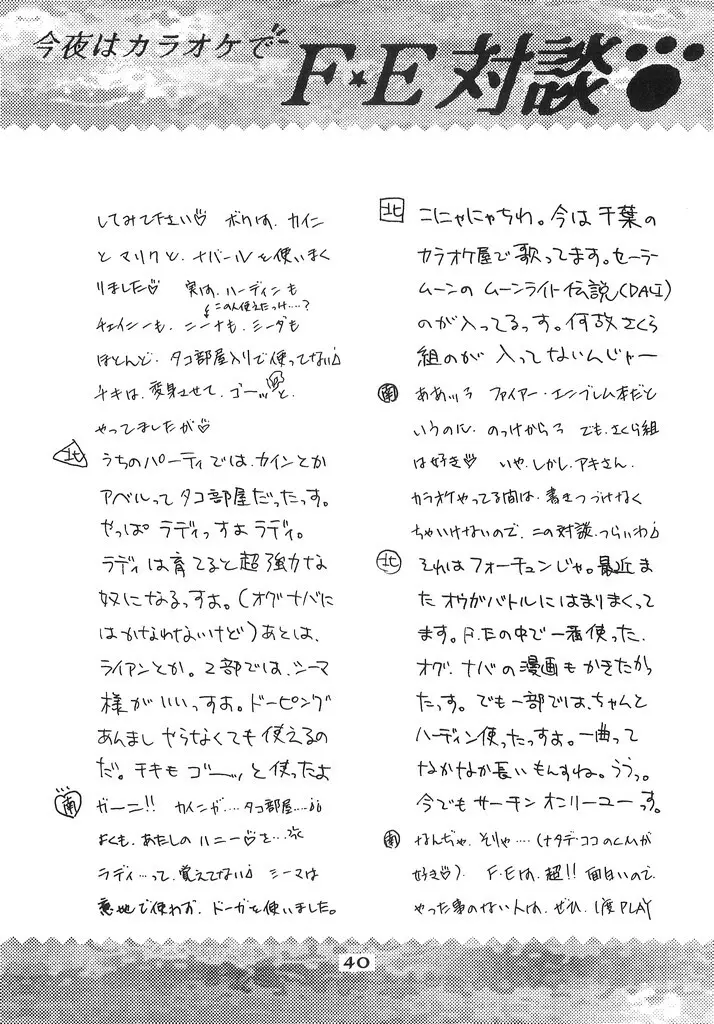 今夜はカラオケで
F★E対談
北 こにゃにゃちわ。今は千葉の
カラオケ屋で歌ってます。セーラー
ムーンの ムーンライト伝説(DALI)
のが入ってるっす。何故さくら
組のが 入ってないんじゃー
南 ああッろ ファイアー・エンブレム本だと
いうのに、のっけからろ でも、さくら組
は好き♡ いや、しかし、アキさん、
カラオケやってる間は、書きつづけなく
ちゃいけないので、この対談、つらいわ♪
北 それはフォーチュンじゃ。最近ま
たオウガバトルにはまりまくって
ます。F.Eの中で一番使った、
オグ、ナバの漫画もかきたかっ
たっす。でも一部では、ちゃんと
ハーディン使ったっすよ。一曲って
なかなか長いもんすね。ううっ。
今でもサーチン オンリーユーっす。
南 なんぢゃ、そりゃ‥‥(ナタデ・ココのCMが
好き♡)。 F・Eは、超!!面白いので、
やった事のない人は、ぜひ、1度PLAY
してみて下さい♡ ボクは、カイン
とマリクと、ナバールを使いまく
りました♡ 実は、ハーディンも
この人使えたっけ‥‥?
チェイニーも、ニーナも、ミーダも
ほとんど、タコ部屋入りで使ってない♪
チキは、変身させて、ゴーッと、
やってましたが♡
北 うちのパーティでは、カインとか
アベルってタコ部屋だったっす。
やっぱ ラディっすよラディ。
ラディは育てると超強力な
奴になるっすよ。(オグナバに
はかなわないけど)あとは、
ライアンとか。2部では、シーマ
様がいいっすよ。ドーピング
あんまし やらなくても使えるの
だ。チキもゴーッと使ったよ
南 ガーン!! カインが‥‥タコ部屋‥‥
よくも、あたしの ハニー♡を‥
ラディ‥って、覚えてない♪ シーマは
意地で使わず、ドーガを使いました。
40